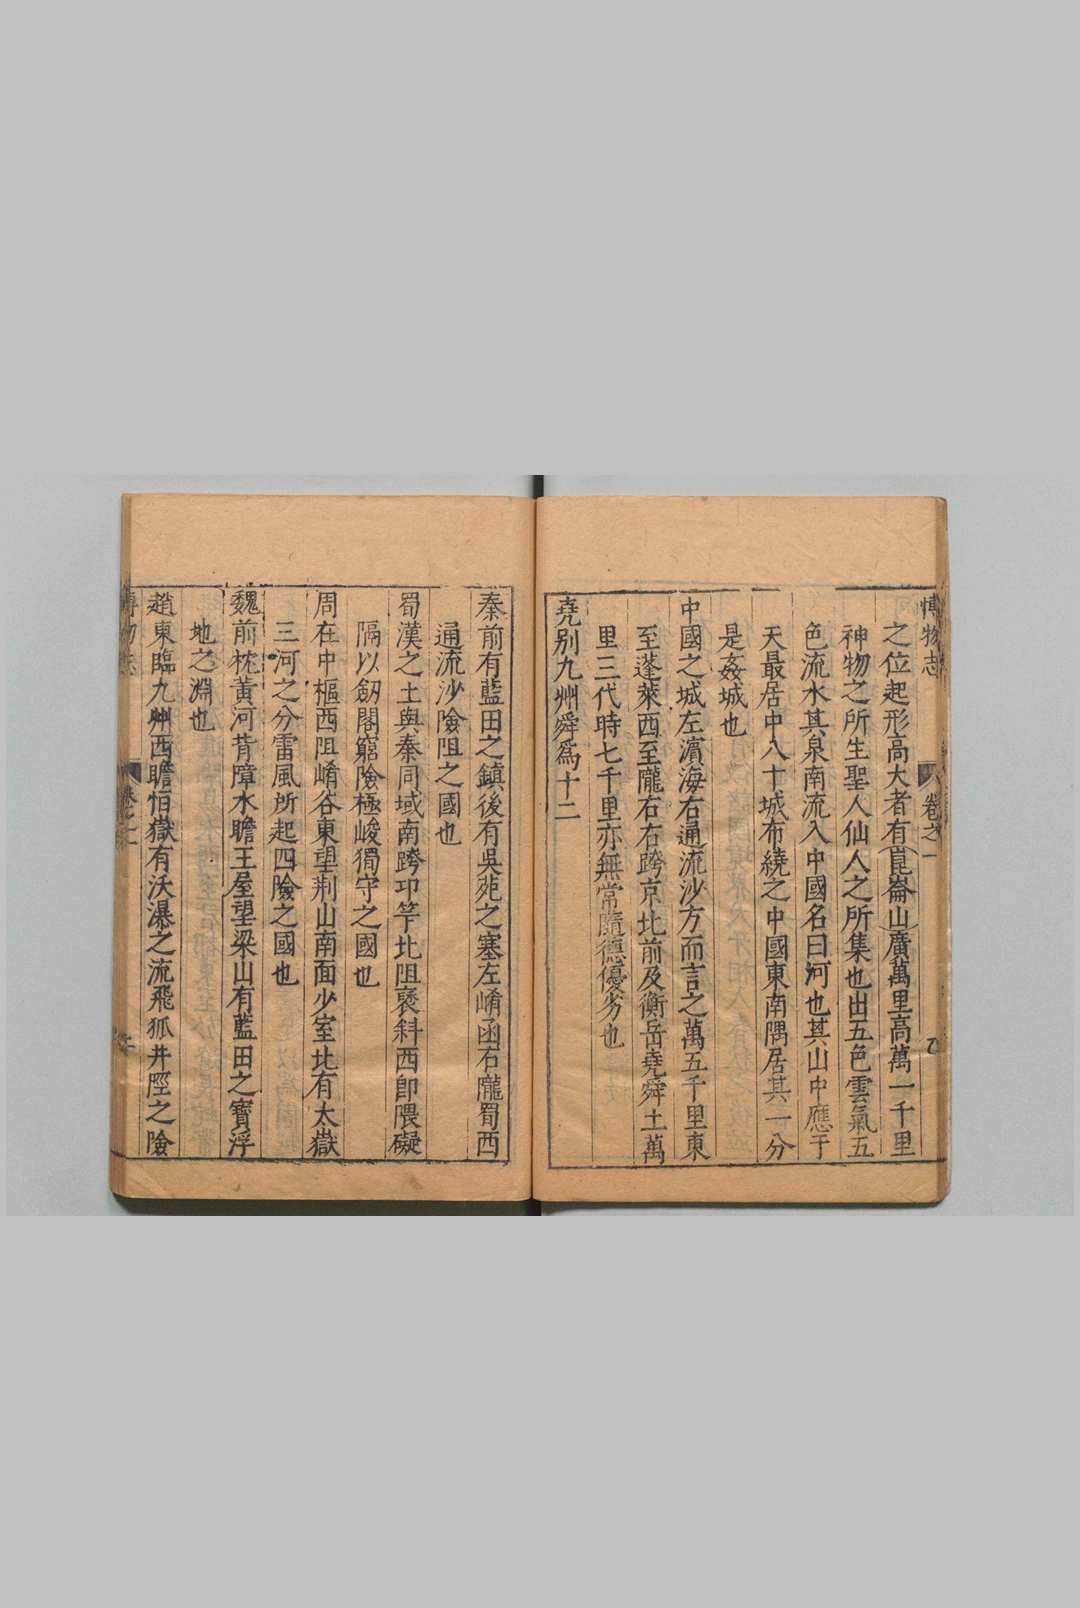 博物志 卷之一
之位起形高大者有崑崙山廣萬里高萬一千里
神物之所生聖人仙人之所集也出五色雲氣五
色流水其泉南流入中國名曰河也其山中應于
天最居中八十城布繞之中國東南隅居其一分
是姦城也
中國之城左濵海右通流沙方而言之萬五千里東
至蓬萊西至隴右右跨京北前及衡岳堯舜土萬
里三代時七千里亦無常隨德優劣也
堯别九州舜爲十二
秦前有藍田之鎮後有吳苑之塞左崤函右隴蜀西
通流沙險阻之國也
蜀漢之土與秦同域南跨卭笮北阻褒斜西卽隈礙
隔以劔閣窮險極峻獨守之國也
周在中樞西阻崤谷東望荆山南面少室北有太嶽
三河之分雷風所起四險之國也
魏前枕黃河背障水瞻王屋望梁山有藍田之寶浮
地之淵也
趙東臨九州西瞻恒嶽有沃瀑之流飛狐井陘之險